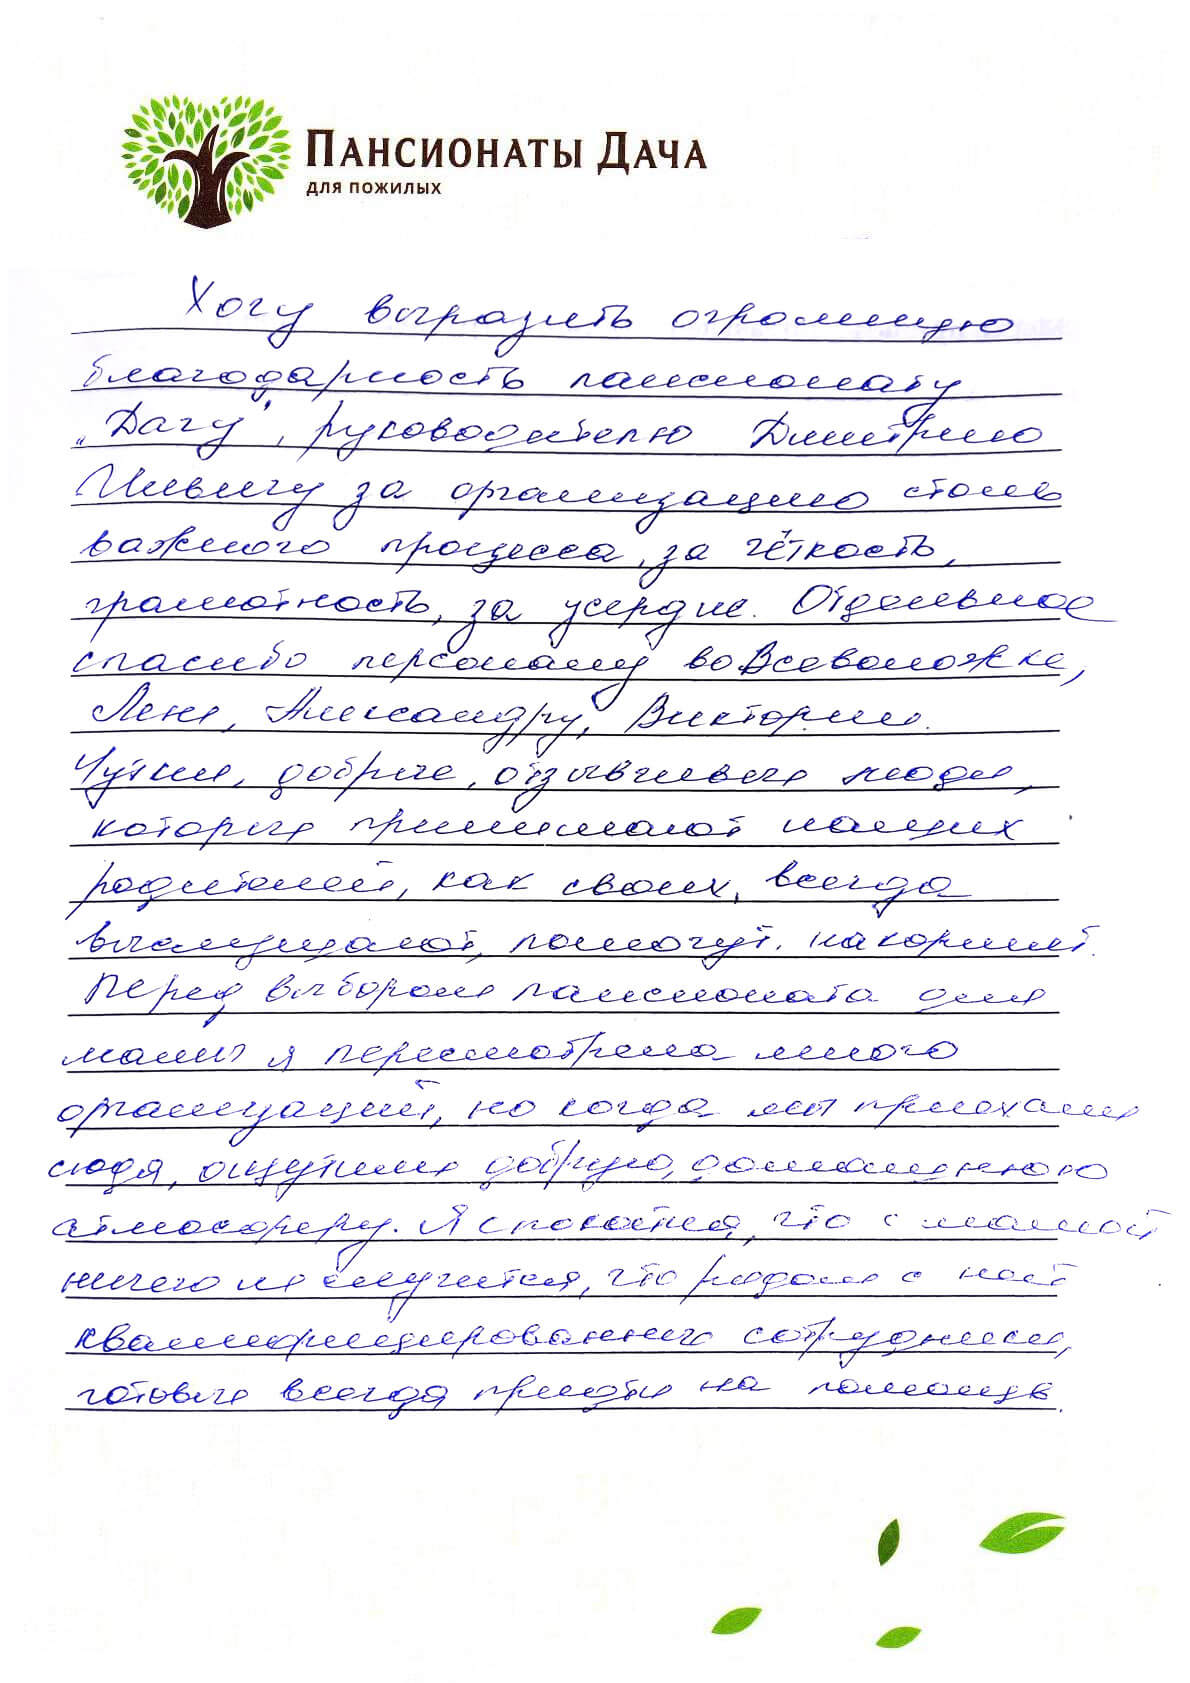 ПАНСИОНАТЫ ДАЧА
ДЛЯ ПОЖИЛЫХ
Хочу выразить огромную
благодарность пансионату
„Дачу", руководителю Дмитрию
за организацию столь
важного процесса, за чёткость,
грамотность, за усердие. Отдельное
спасибо персоналу во Всеволожке,
Лене, Александру, Виктории.
Чуткие, добрые, отзывчивые люди,
которые принимают наших
родителей, как своих, всегда
выслушают, помогут, накормят.
Перед выбором пансионата для
мамы я пересмотрела много
организаций, но когда мы приехали
сюда, ощутили добрую, домашнюю
атмосферу. Я спокойна, что с мамой
ничего не случится, что рядом с ней
квалифицированные сотрудники,
готовые всегда прийти на помощь.